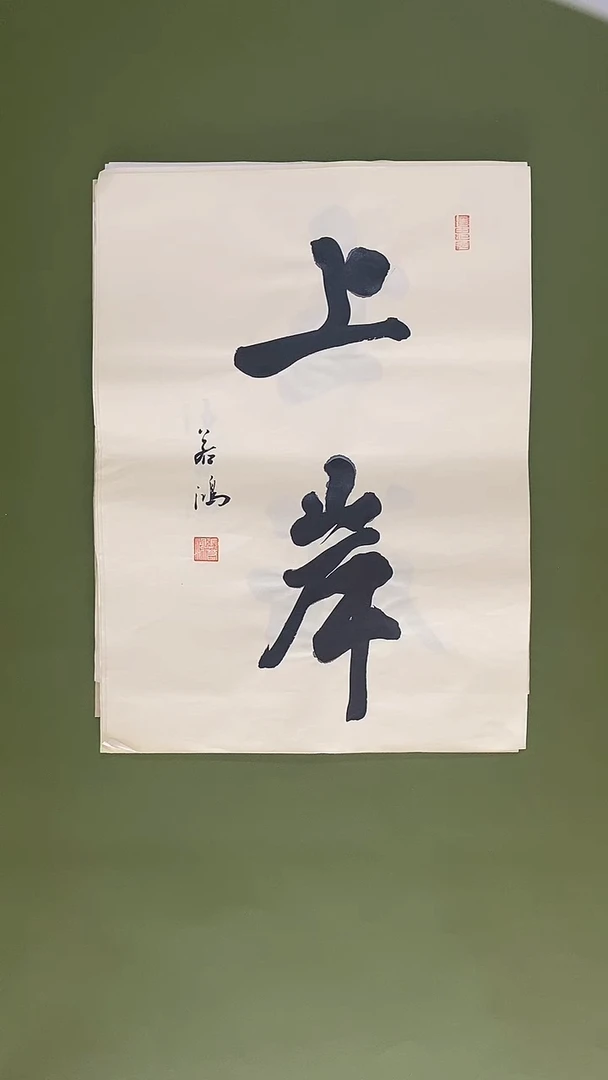 上岸
若鴻